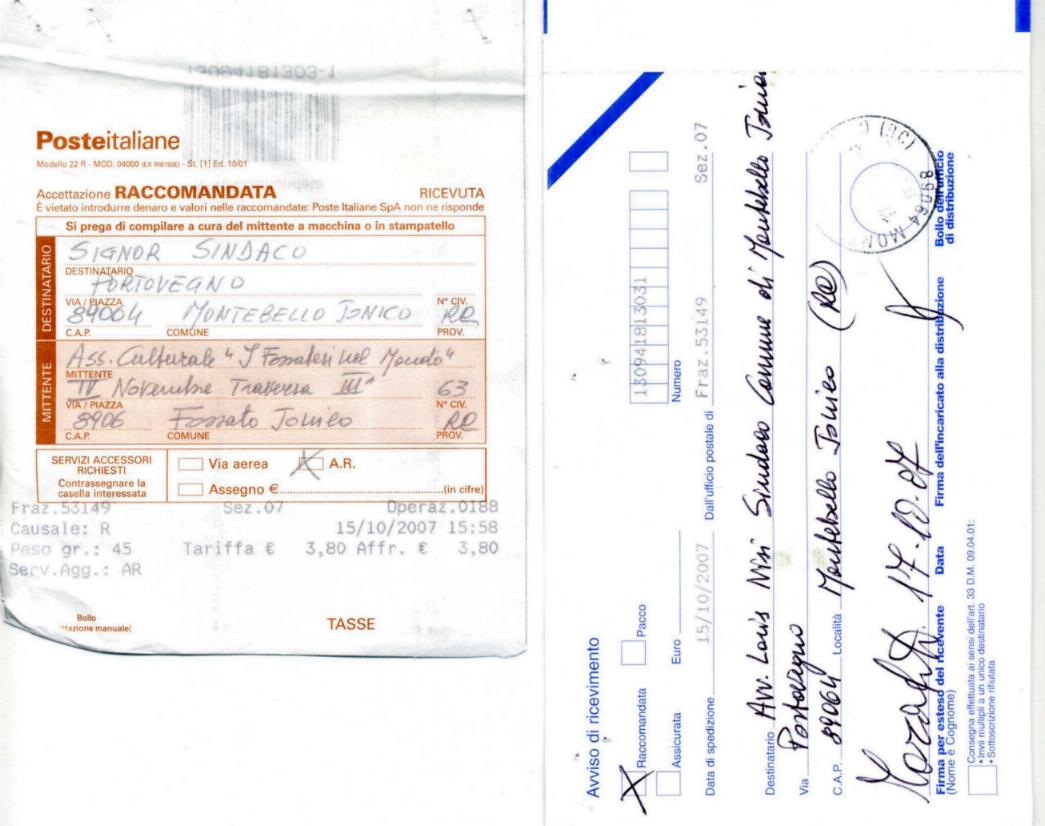 13094181303-1
Posteitaliane
Modello 22 R - MOD. 04000 (EX W8150E) - St. [1] Ed. 10/01
Accettazione RACCOMANDATA RICEVUTA
È vietato introdurre denaro e valori nelle raccomandate: Poste Italiane SpA non ne risponde
Si prega di compilare a cura del mittente a macchina o in stampatello
DESTINATARIO
SIGNOR SINDACO
DESTINATARIO
PORTOVEGNO
VIA / PIAZZA N° CIV.
89064 MONTEBELLO JONICO RC
C.A.P. COMUNE PROV.
MITTENTE
Ass. Culturale "I Fossatesi nel Mondo"
MITTENTE
IV Novembre Traversa IIIª 63
VIA / PIAZZA N° CIV.
8906 Fossato Jonico RC
C.A.P. COMUNE PROV.
SERVIZI ACCESSORI RICHIESTI
Contrassegnare la casella interessata
Via aerea X A.R.
Assegno € (in cifre)
Fraz.53149 Sez.07 Operaz.0188
Causale: R 15/10/2007 15:58
Peso gr.: 45 Tariffa € 3,80 Affr. € 3,80
Serv.Agg.: AR
Bollo
tazione manuale)
TASSE
Avviso di ricevimento
X Raccomandata Pacco
Assicurata Euro
130941813031
Numero
Data di spedizione 15/10/2007 Dall'ufficio postale di Fraz.53149 Sez.07
Destinatario Avv. Loris Nisi Sindaco Comune di Montebello Jonico
Via Portovegno
C.A.P. 89064 Località Montebello Jonico (RC)
17-10-07
Firma per esteso del ricevente Data Firma dell'incaricato alla distribuzione Bollo dell'ufficio di distribuzione
(Nome e Cognome)
89064 MON (RC)
Consegna effettuata ai sensi dell'art. 33 D.M. 09.04.01:
• Invii multipli a un unico destinatario
• Sottoscrizione rifiutata